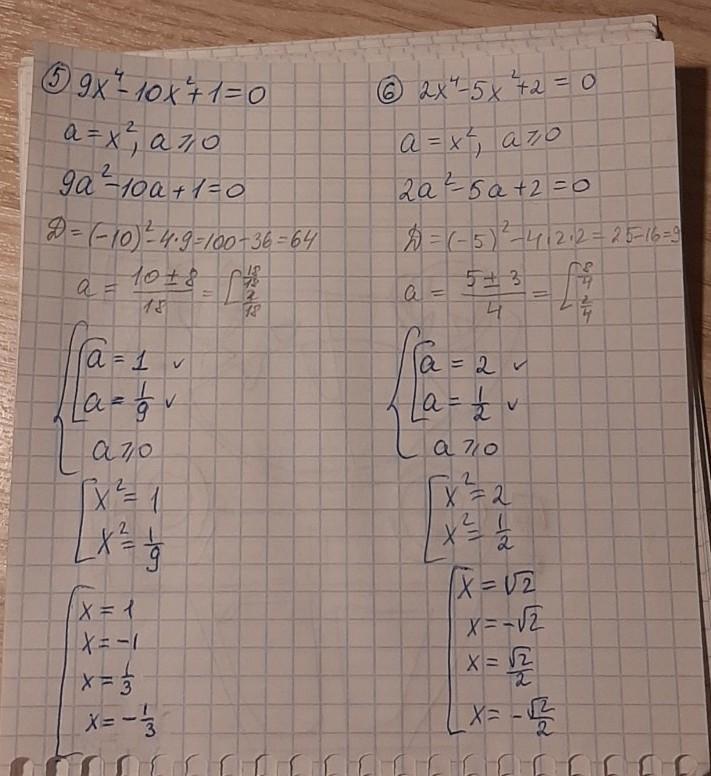 ⑤ 9x⁴-10x²+1=0
a=x², a⩾0
9a²-10a+1=0
D=(-10)²-4·9=100-36=64
a = (10±8)/18 = [18/18 2/18
{[a=1 ✓
a=1/9 ✓
a⩾0
[x²=1
x²=1/9
[x=1
x=-1
x=1/3
x=-1/3
⑥ 2x⁴-5x²+2=0
a=x², a⩾0
2a²-5a+2=0
D=(-5)²-4·2·2=25-16=9
a = (5±3)/4 = [8/4 2/4
{[a=2 ✓
a=1/2 ✓
a⩾0
[x²=2
x²=1/2
[x=√2
x=-√2
x=√2/2
x=-√2/2